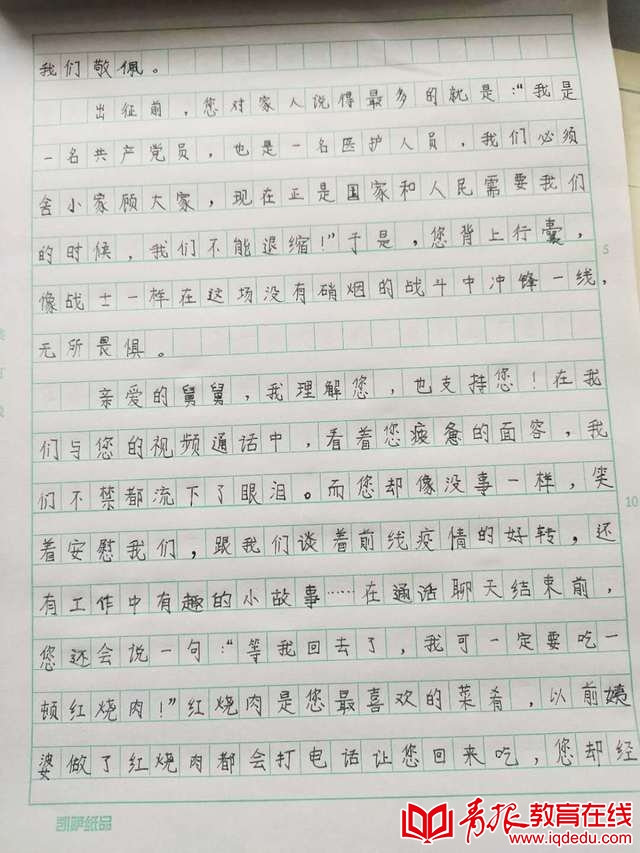 我们敬佩。
出征前，您对家人说得最多的就是："我是
一名共产党员，也是一名医护人员，我们必须
舍小家顾大家，现在正是国家和人民需要我们
的时候，我们不能退缩！"于是，您背上行囊，
像战士一样在这场没有硝烟的战斗中冲锋一线，
无所畏惧。
亲爱的舅舅，我理解您，也支持您！在我
们与您的视频通话中，看着您疲惫的面容，我
们不禁都流下了眼泪。而您却像没事一样，笑
着安慰我们，跟我们谈着前线疫情的好转，还
有工作中有趣的小故事……在通话聊天结束前，
您还会说一句："等我回去了，我可一定要吃一
顿红烧肉！"红烧肉是您最喜欢的菜肴，以前姨
婆做了红烧肉都会打电话让您回来吃，您却经
5
10
青报教育在线
www.iqdedu.com